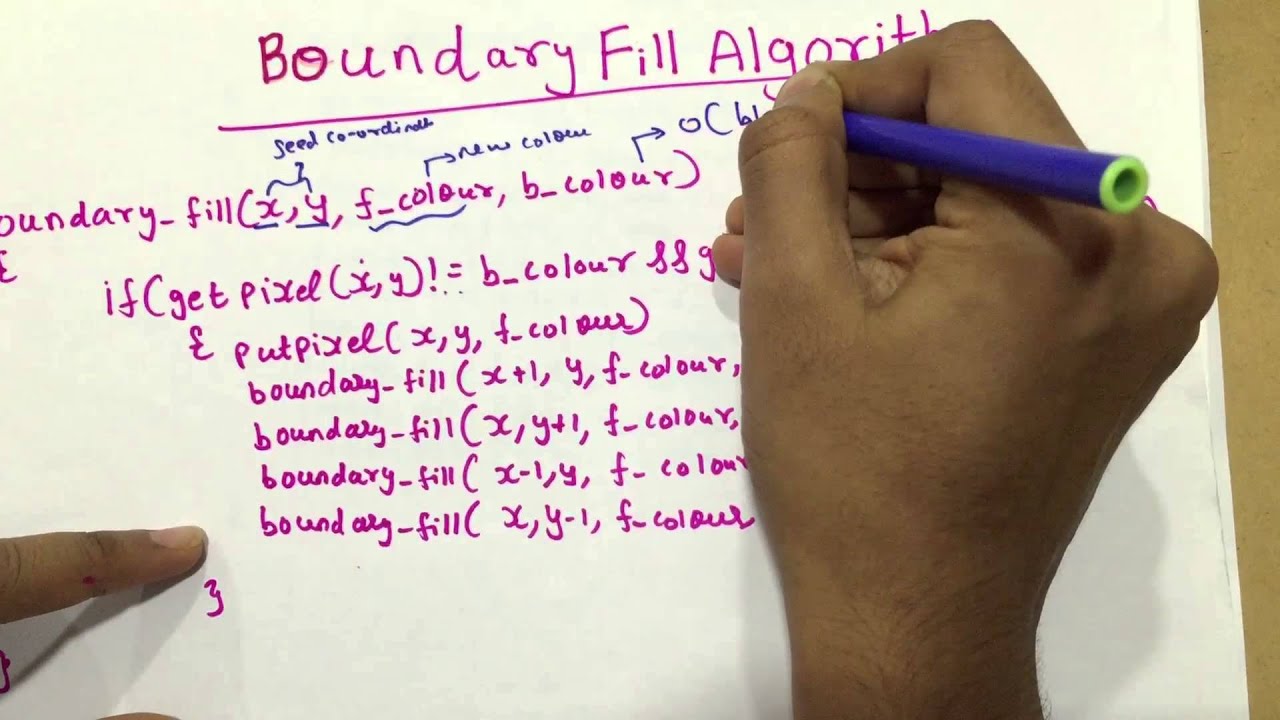 Boundary Fill Algorith
seed co-ordinate
new colour
o(bl
oundary_fill(x, y, f_colour, b_colour)
{
if(getpixel(x,y)!= b_colour && g
{ putpixel(x, y, f_colour)
boundary_fill(x+1, y, f_colour,
boundary_fill(x, y+1, f_colour,
boundary_fill( x-1, y, f_colour
boundary_fill( x, y-1, f_colour
}
}